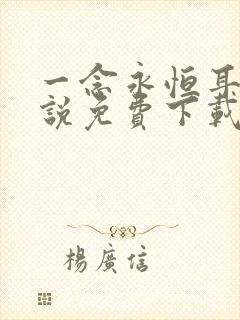 一念永恒耳
說免費下載
楊廣信